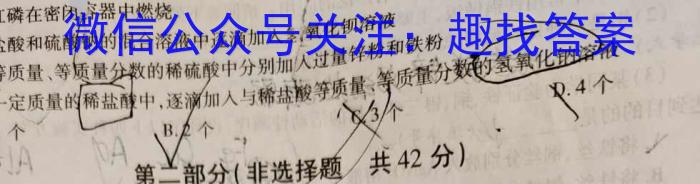 红磷在密闭容器中燃烧
微信公众号关注：趣找答案
盐酸和硫酸的混合溶液中逐滴加入氢氧化钡溶液
等质量、等质量分数的稀硫酸中分别加入过量锌粉和铁粉
一定质量的稀盐酸中,逐滴加入与稀盐酸等质量、等质量分数的氢氧化钠溶液
个 B.2 个 C.3 个 D.4 个
第二部分(非选择题 共 42 分)